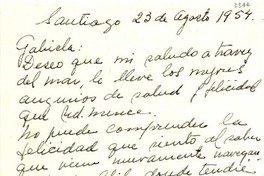 Santiago 23 de Agosto 1954.
Gabriela:
Deseo que mi saludo a través
del mar, le lleve los mejores
augurios de salud y felicidad
que Ud. merece.
No puede comprender la
felicidad que siento al saber
que viene nuevamente
donde